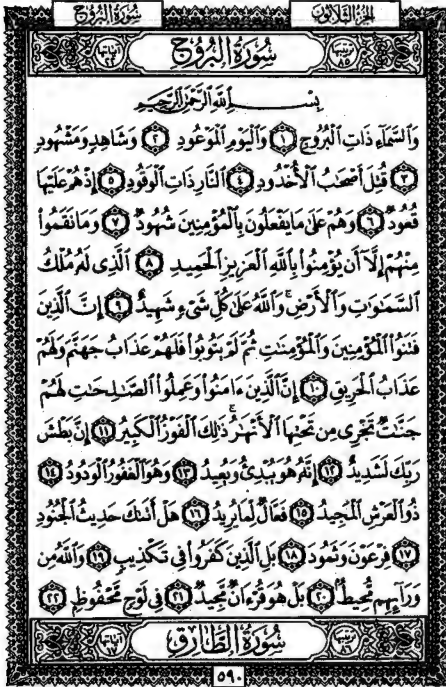 سُورَةُ البُرُوجِ الجُزْءُ الثَّلَاثُونَ
ترتيبها ٨٥ سُورَةُ البُرُوجِ آياتها ٢٢
بِسْمِ اللَّهِ الرَّحْمَٰنِ الرَّحِيمِ
وَٱلسَّمَآءِ ذَاتِ ٱلْبُرُوجِ ١ وَٱلْيَوْمِ ٱلْمَوْعُودِ ٢ وَشَاهِدٍ وَمَشْهُودٍ
٣ قُتِلَ أَصْحَٰبُ ٱلْأُخْدُودِ ٤ ٱلنَّارِ ذَاتِ ٱلْوَقُودِ ٥ إِذْ هُمْ عَلَيْهَا
قُعُودٌ ٦ وَهُمْ عَلَىٰ مَا يَفْعَلُونَ بِٱلْمُؤْمِنِينَ شُهُودٌ ٧ وَمَا نَقَمُوا۟
مِنْهُمْ إِلَّآ أَن يُؤْمِنُوا۟ بِٱللَّهِ ٱلْعَزِيزِ ٱلْحَمِيدِ ٨ ٱلَّذِى لَهُۥ مُلْكُ
ٱلسَّمَٰوَٰتِ وَٱلْأَرْضِ ۚ وَٱللَّهُ عَلَىٰ كُلِّ شَىْءٍ شَهِيدٌ ٩ إِنَّ ٱلَّذِينَ
فَتَنُوا۟ ٱلْمُؤْمِنِينَ وَٱلْمُؤْمِنَٰتِ ثُمَّ لَمْ يَتُوبُوا۟ فَلَهُمْ عَذَابُ جَهَنَّمَ وَلَهُمْ
عَذَابُ ٱلْحَرِيقِ ١٠ إِنَّ ٱلَّذِينَ ءَامَنُوا۟ وَعَمِلُوا۟ ٱلصَّٰلِحَٰتِ لَهُمْ
جَنَّٰتٌ تَجْرِى مِن تَحْتِهَا ٱلْأَنْهَٰرُ ۚ ذَٰلِكَ ٱلْفَوْزُ ٱلْكَبِيرُ ١١ إِنَّ بَطْشَ
رَبِّكَ لَشَدِيدٌ ١٢ إِنَّهُۥ هُوَ يُبْدِئُ وَيُعِيدُ ١٣ وَهُوَ ٱلْغَفُورُ ٱلْوَدُودُ ١٤
ذُو ٱلْعَرْشِ ٱلْمَجِيدُ ١٥ فَعَّالٌ لِّمَا يُرِيدُ ١٦ هَلْ أَتَىٰكَ حَدِيثُ ٱلْجُنُودِ
١٧ فِرْعَوْنَ وَثَمُودَ ١٨ بَلِ ٱلَّذِينَ كَفَرُوا۟ فِى تَكْذِيبٍ ١٩ وَٱللَّهُ مِن
وَرَآئِهِم مُّحِيطٌۢ ٢٠ بَلْ هُوَ قُرْءَانٌ مَّجِيدٌ ٢١ فِى لَوْحٍ مَّحْفُوظٍۭ ٢٢
ترتيبها ٨٦ سُورَةُ الطَّارِقِ آياتها ١٧
٥٩٠